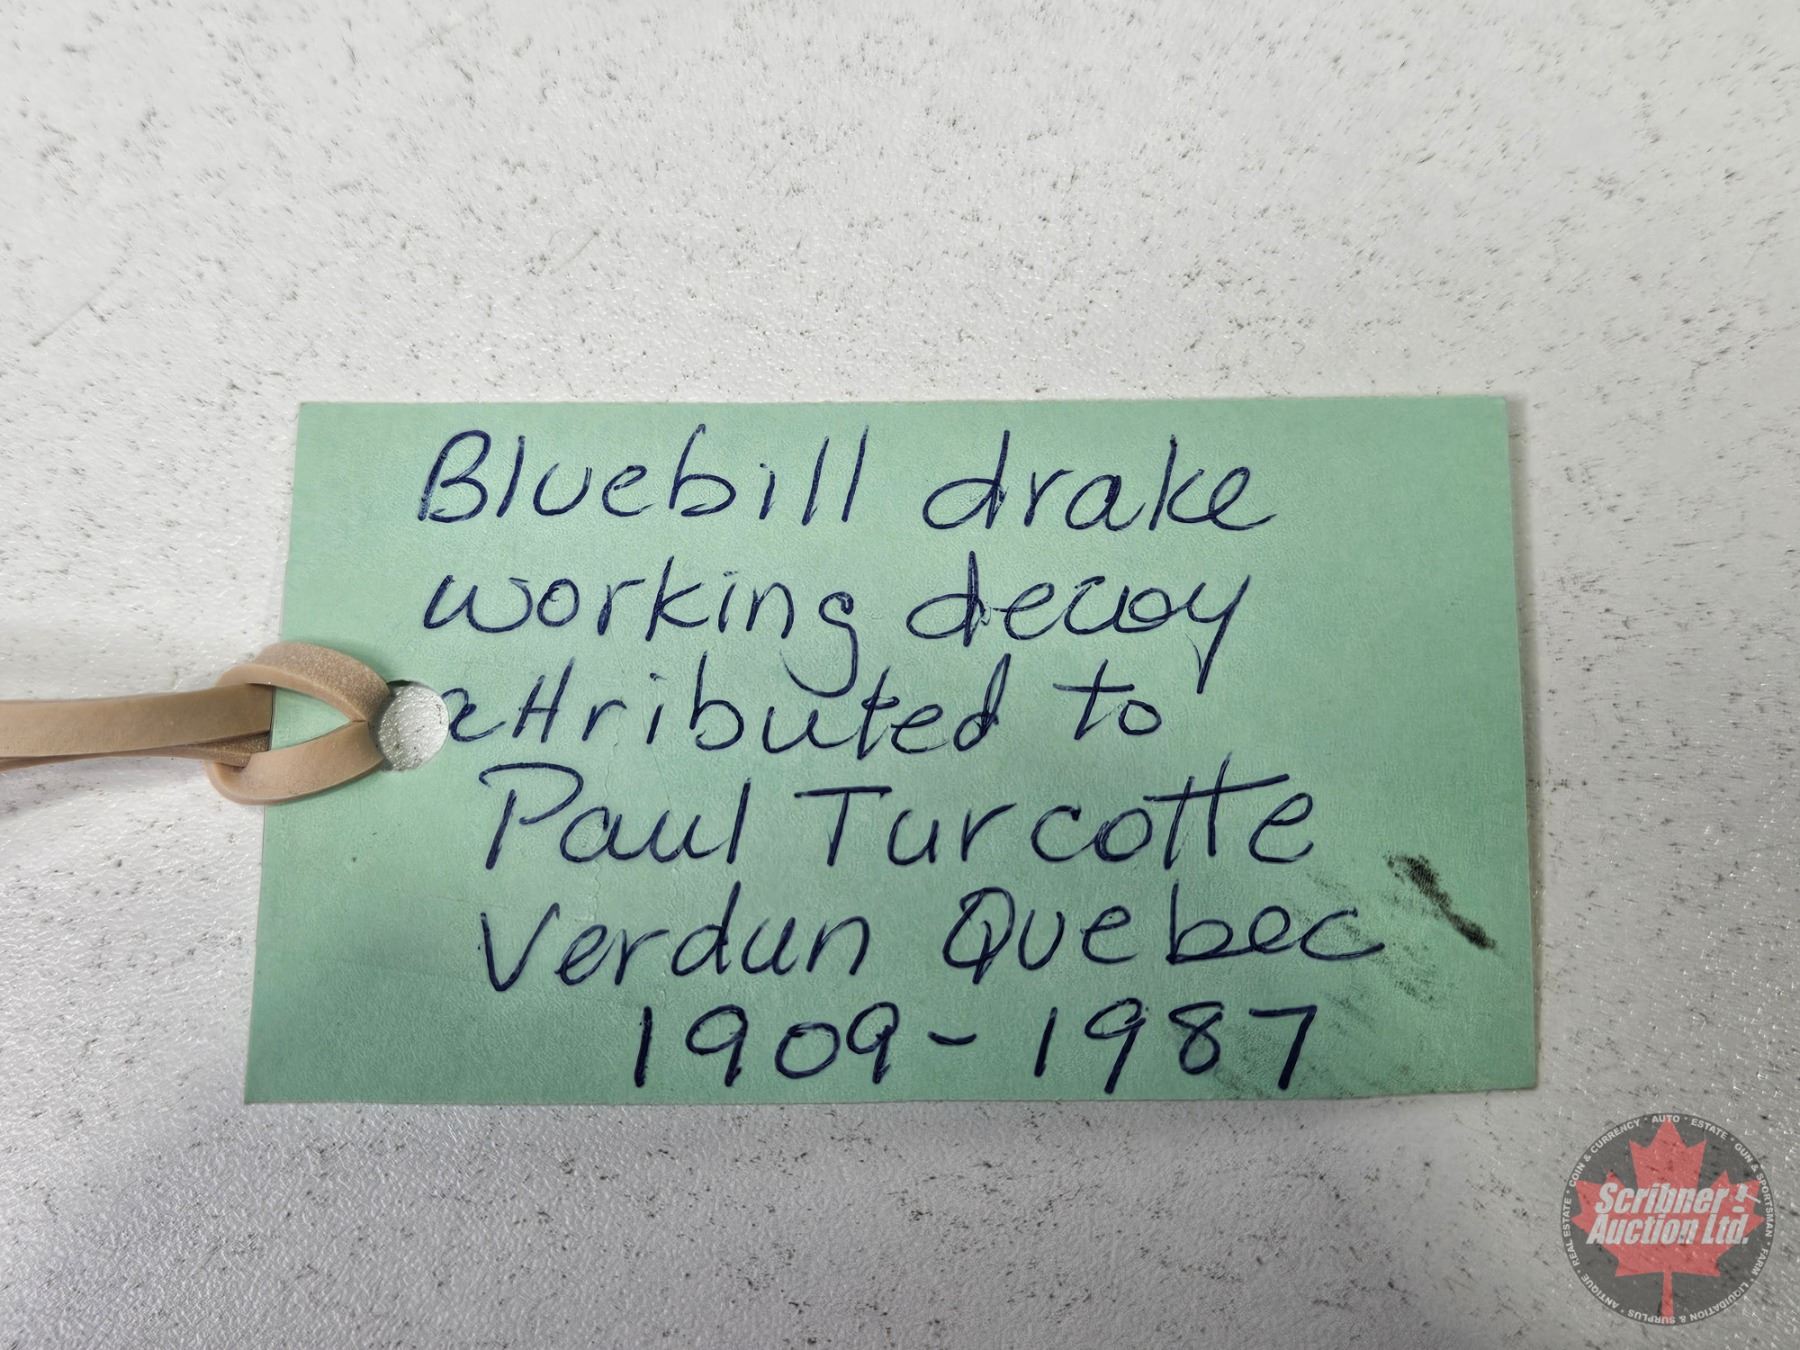 Bluebill drake
working decoy
attributed to
Paul Turcotte
Verdun Quebec
1909-1987
Scribner
Auction Ltd.
COIN & CURRENCY · AUTO · ESTATE · GUN & SPORTSMAN · FARM · LIQUIDATION & SURPLUS · ANTIQUE · REAL ESTATE ·